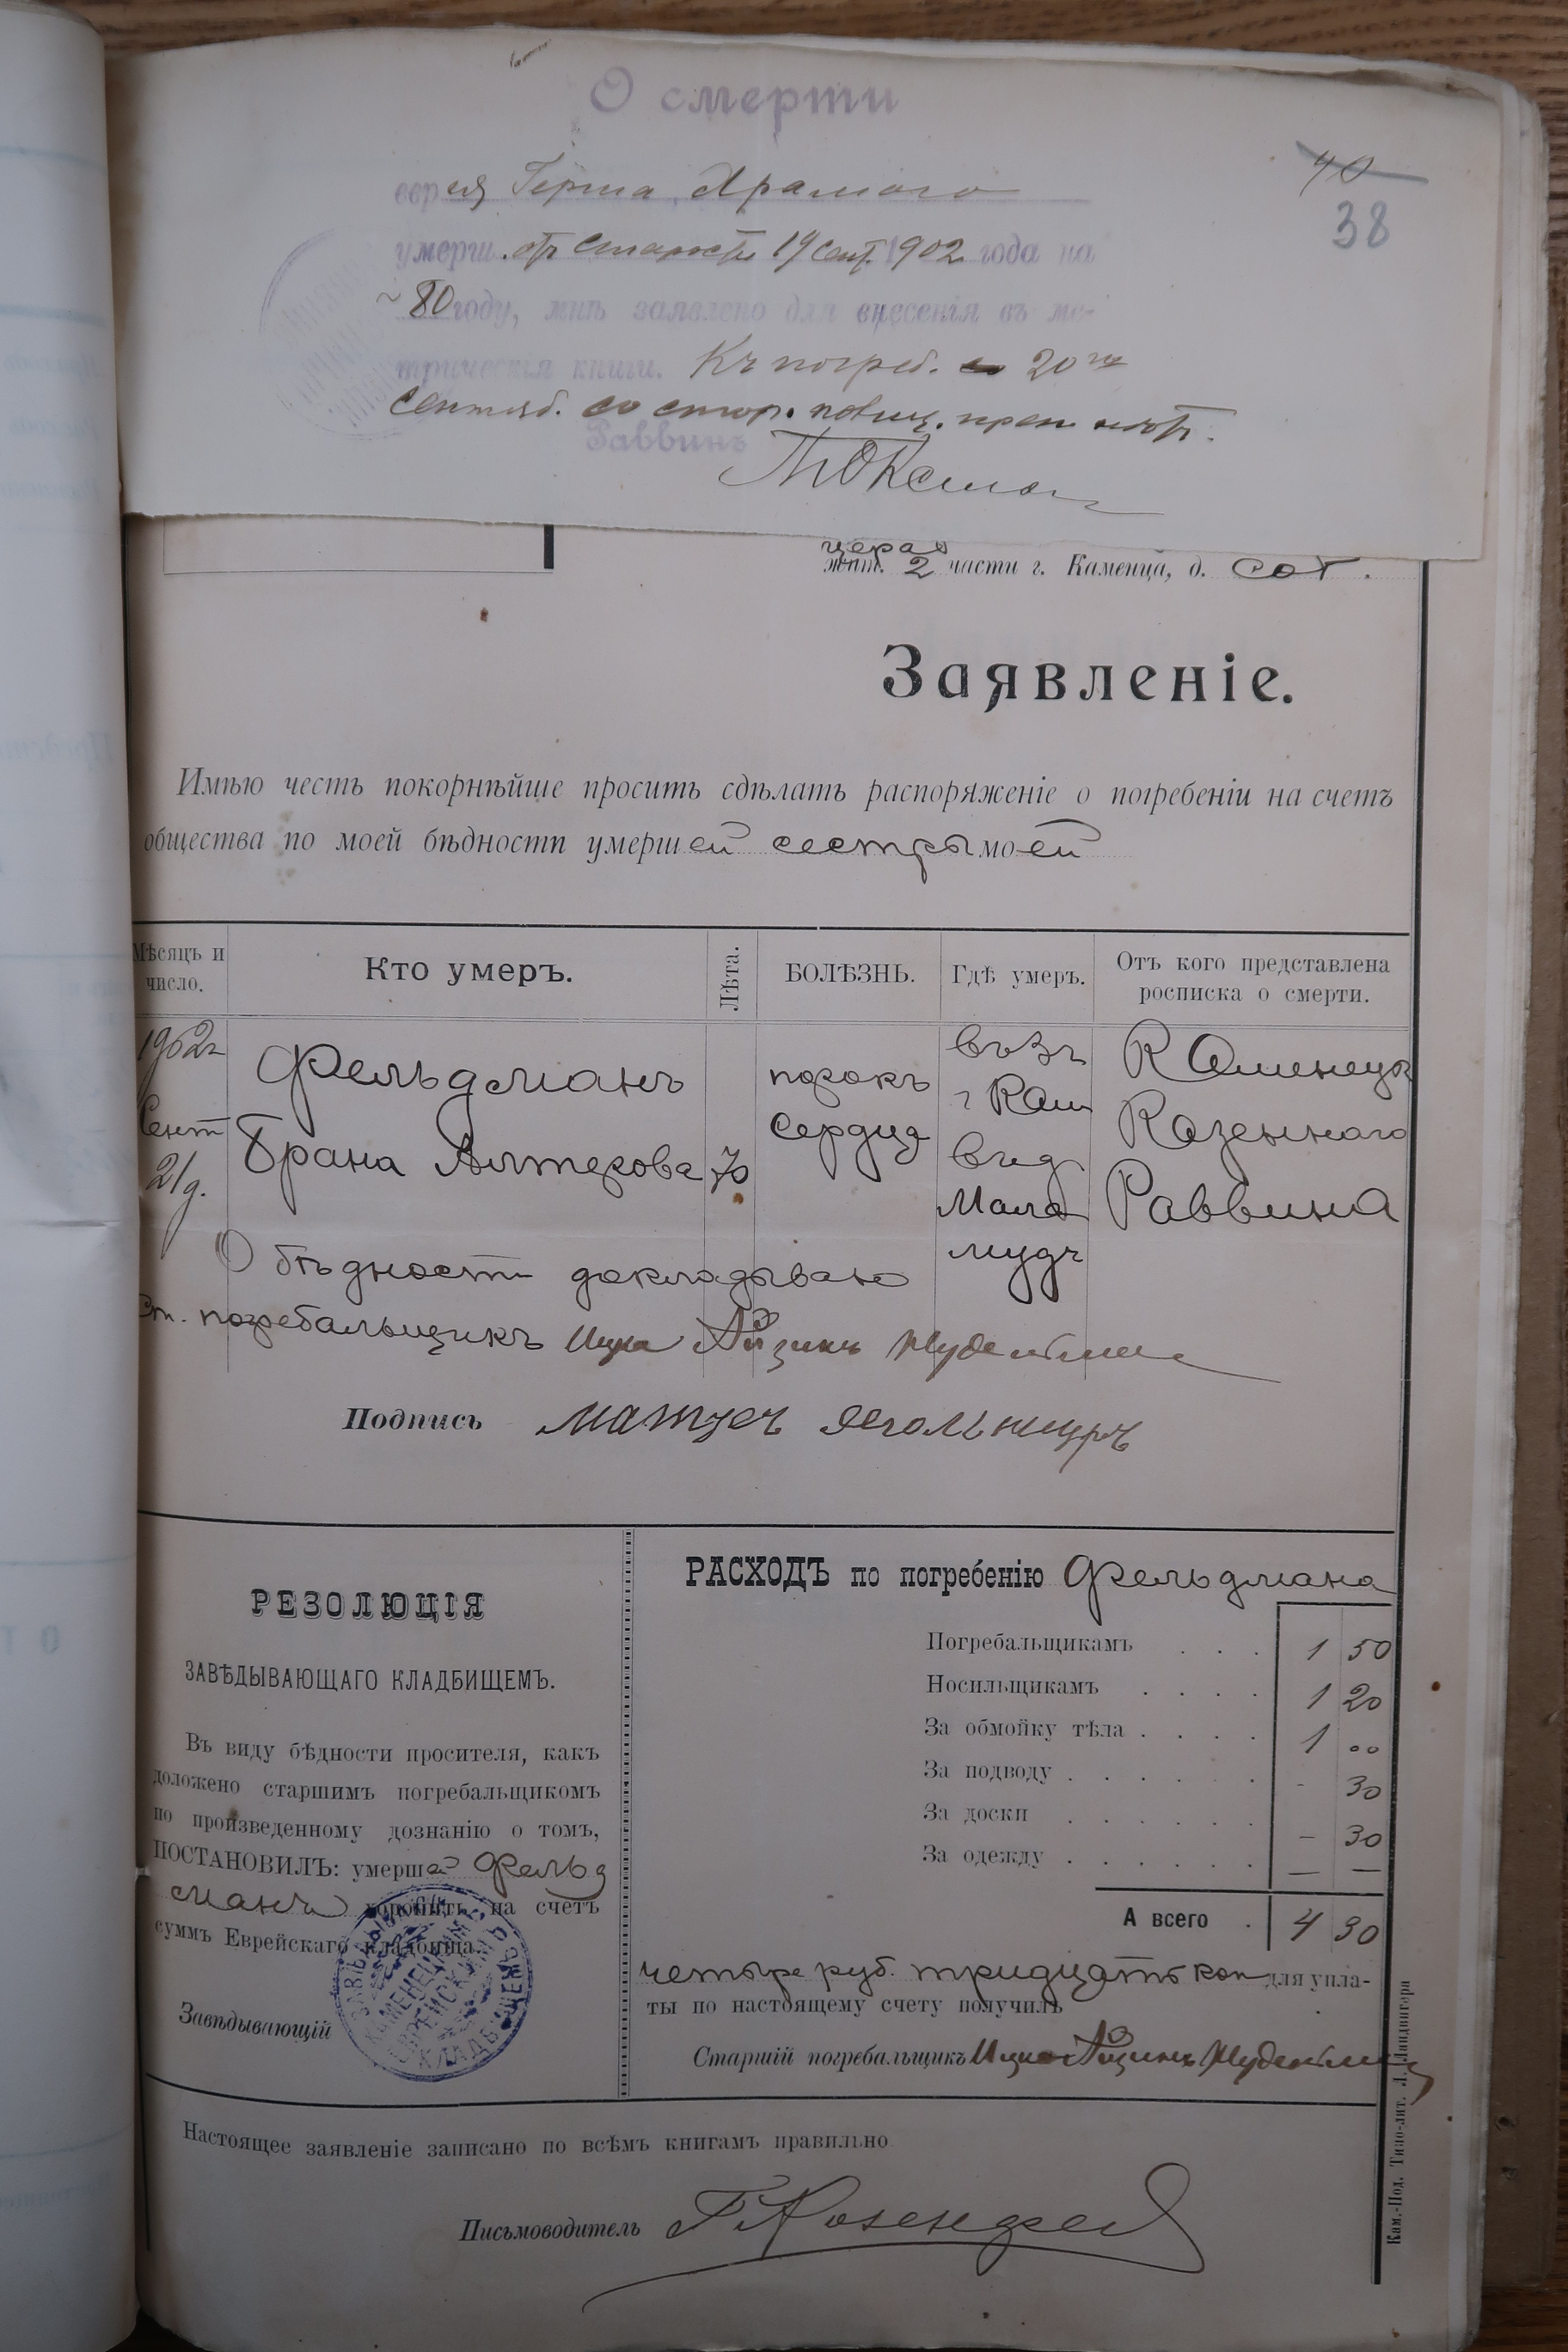 О смерти
40
38
еврея Герша Храмого
умерш. отъ старости 19 сент. 1902 года на
80 году, мнѣ заявлено для внесенія въ ме-
трическія книги. Къ погреб. 20го
Сентяб. со стор. полиц. преп. нѣтъ.
Раввинъ
2 части г. Каменца, д. сот.
Заявленіе.
Имѣю честь покорнѣйше просить сдѣлать распоряженіе о погребеніи на счетъ
общества по моей бѣдности умершей сестры моей
Мѣсяцъ и число. Кто умеръ. Лѣта. БОЛѢЗНЬ. Гдѣ умеръ. Отъ кого представлена росписка о смерти.
1902г Сент 21д.
Фельдманъ
Брана Алтерова
70
порокъ
сердца
г Кам
Каменецъ
Казеннаго
Раввина
О бѣдности докладываю
Ст. погребальщикъ Ицко Айзикъ
Подпись
РЕЗОЛЮЦІЯ
ЗАВѢДЫВАЮЩАГО КЛАДБИЩЕМЪ.
Въ виду бѣдности просителя, какъ
доложено старшимъ погребальщикомъ
по произведенному дознанію о томъ,
ПОСТАНОВИЛЪ: умерш Фельд
манъ хоронить на счетъ
суммъ Еврейскаго кладбища.
Завѣдывающій
ЗАВѢДЫВАЮЩІЙ КАМЕНЕЦКИМЪ ЕВРЕЙСКИМЪ КЛАДБИЩЕМЪ
РАСХОДЪ по погребенію Фельдмана
Погребальщикамъ . . . 1 50
Носильщикамъ . . . . 1 20
За обмойку тѣла . . . . 1 00
За подводу . . . . . . - 30
За доски . . . . . . - 30
За одежду . . . . . . — —
А всего . 4 30
четыре руб. тридцать коп для упла-
ты по настоящему счету получилъ
Старшій погребальщикъ Ицко Айзикъ
Настоящее заявленіе записано по всѣмъ книгамъ правильно
Письмоводитель Г. Розенфельд
Кам.-Под. Типо-лит. Л. Ландвигера